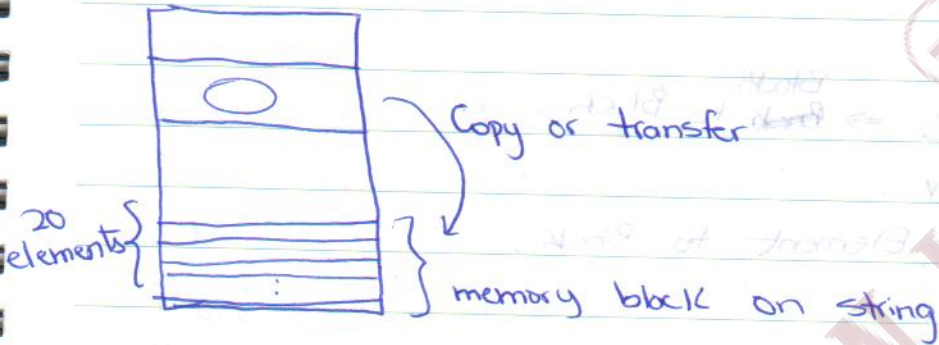 Copy or transfer
20
elements
memory block on string